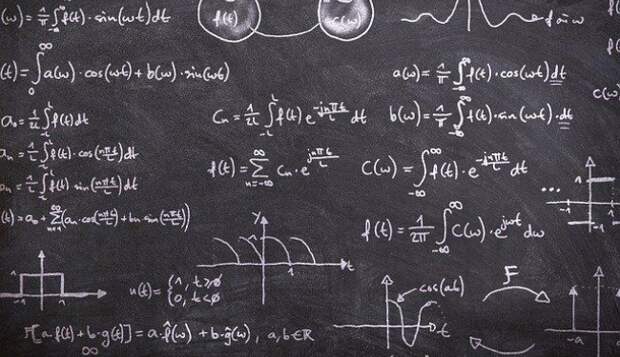 (ω) = 1/π ∫_{-∞}^{∞} f(t) · sin(ωt) dt
f(t)
c(ω)
(t) = ∫_{0}^{∞} a(ω) · cos(ωt) + b(ω) · sin(ωt)
a(ω) = 1/π ∫_{-∞}^{∞} f(t) · cos(ωt) dt
c(ω)
a₀ = 1/2L ∫_{-L}^{L} f(t) dt
Cn = 1/2L ∫_{-L}^{L} f(t) e^{-jnπt/L} dt
b(ω) = 1/π ∫_{-∞}^{∞} f(t) · sin(ωt) · dt
an = 1/L ∫_{-L}^{L} f(t) · cos(nπt/L) dt
f(t) = Σ_{n=-∞}^{∞} Cn · e^{jnπt/L}
C(ω) = ∫_{-∞}^{∞} f(t) · e^{-jnπt/L} dt
∫_{-L}^{L} f(t) sin(nπt/L) dt
(t) = a₀ + Σ_{n=1}^{∞} (an · cos(nπt/L) + bn sin(nπt/L))
f(t) = 1/2π ∫_{-∞}^{∞} C(ω) · e^{jωt} dω
... -1 1
y
1 t
1
-1 1
u(t) = {1, t≥0
0, t<0
cos(at)
t
F
-a
F[a·f(t) + b·g(t)] = a·f̂(ω) + b·ĝ(ω), a,b∈ℝ
∞